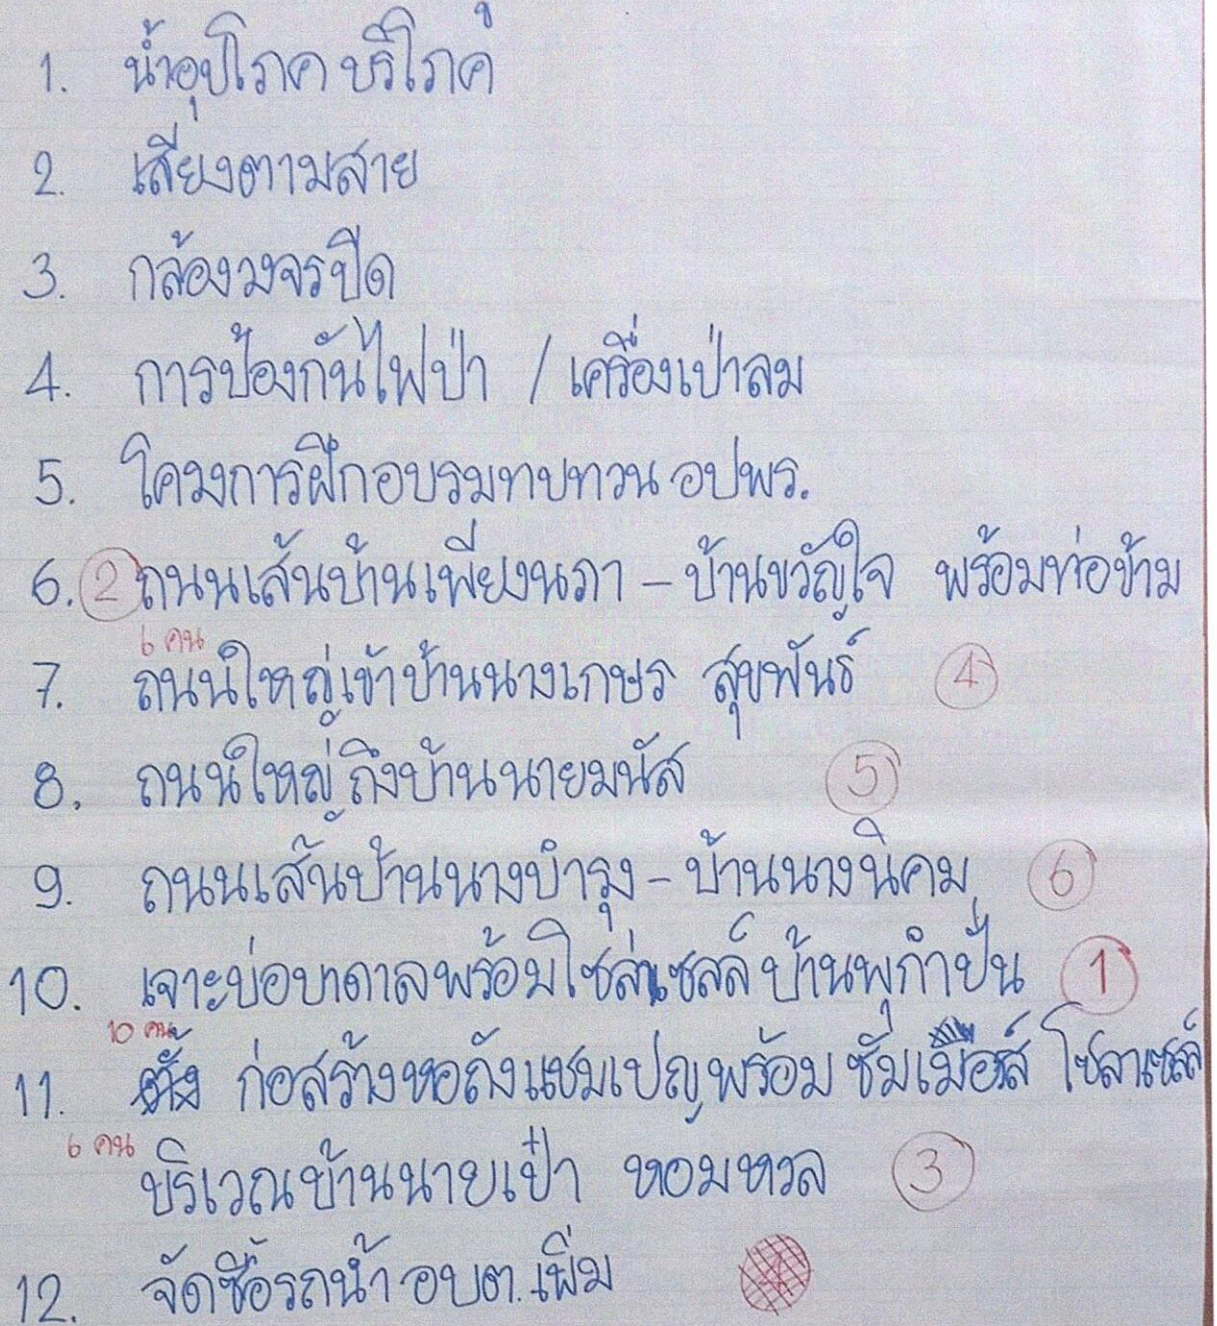 1. น้ำอุปโภค บริโภค
2. เสียงตามสาย
3. กล้องวงจรปิด
4. การป้องกันไฟป่า / เครื่องเป่าลม
5. โครงการฝึกอบรมทบทวน อปพร.
6. ② ถนนเส้นบ้านเพียงนภา - บ้านขวัญใจ พร้อมท่อข้าม
6 คน
7. ถนนใหญ่เข้าบ้านนางเกษร สุขพันธ์ ④
8. ถนนใหญ่ถึงบ้านนายมนัส ⑤
9. ถนนเส้นบ้านนางบำรุง - บ้านนางนิคม ⑥
10. เจาะบ่อบาดาลพร้อมโซล่าเซลล์ บ้านพุกำปั่น ①
10 คน
11. ก่อสร้างหอถังแชมเปญพร้อม ซัมเมิอส์ โซลาเซลล์
6 คน
บริเวณบ้านนายเป๋า หอมหวล ③
12. จัดซื้อรถน้ำ อบต.เพิ่ม